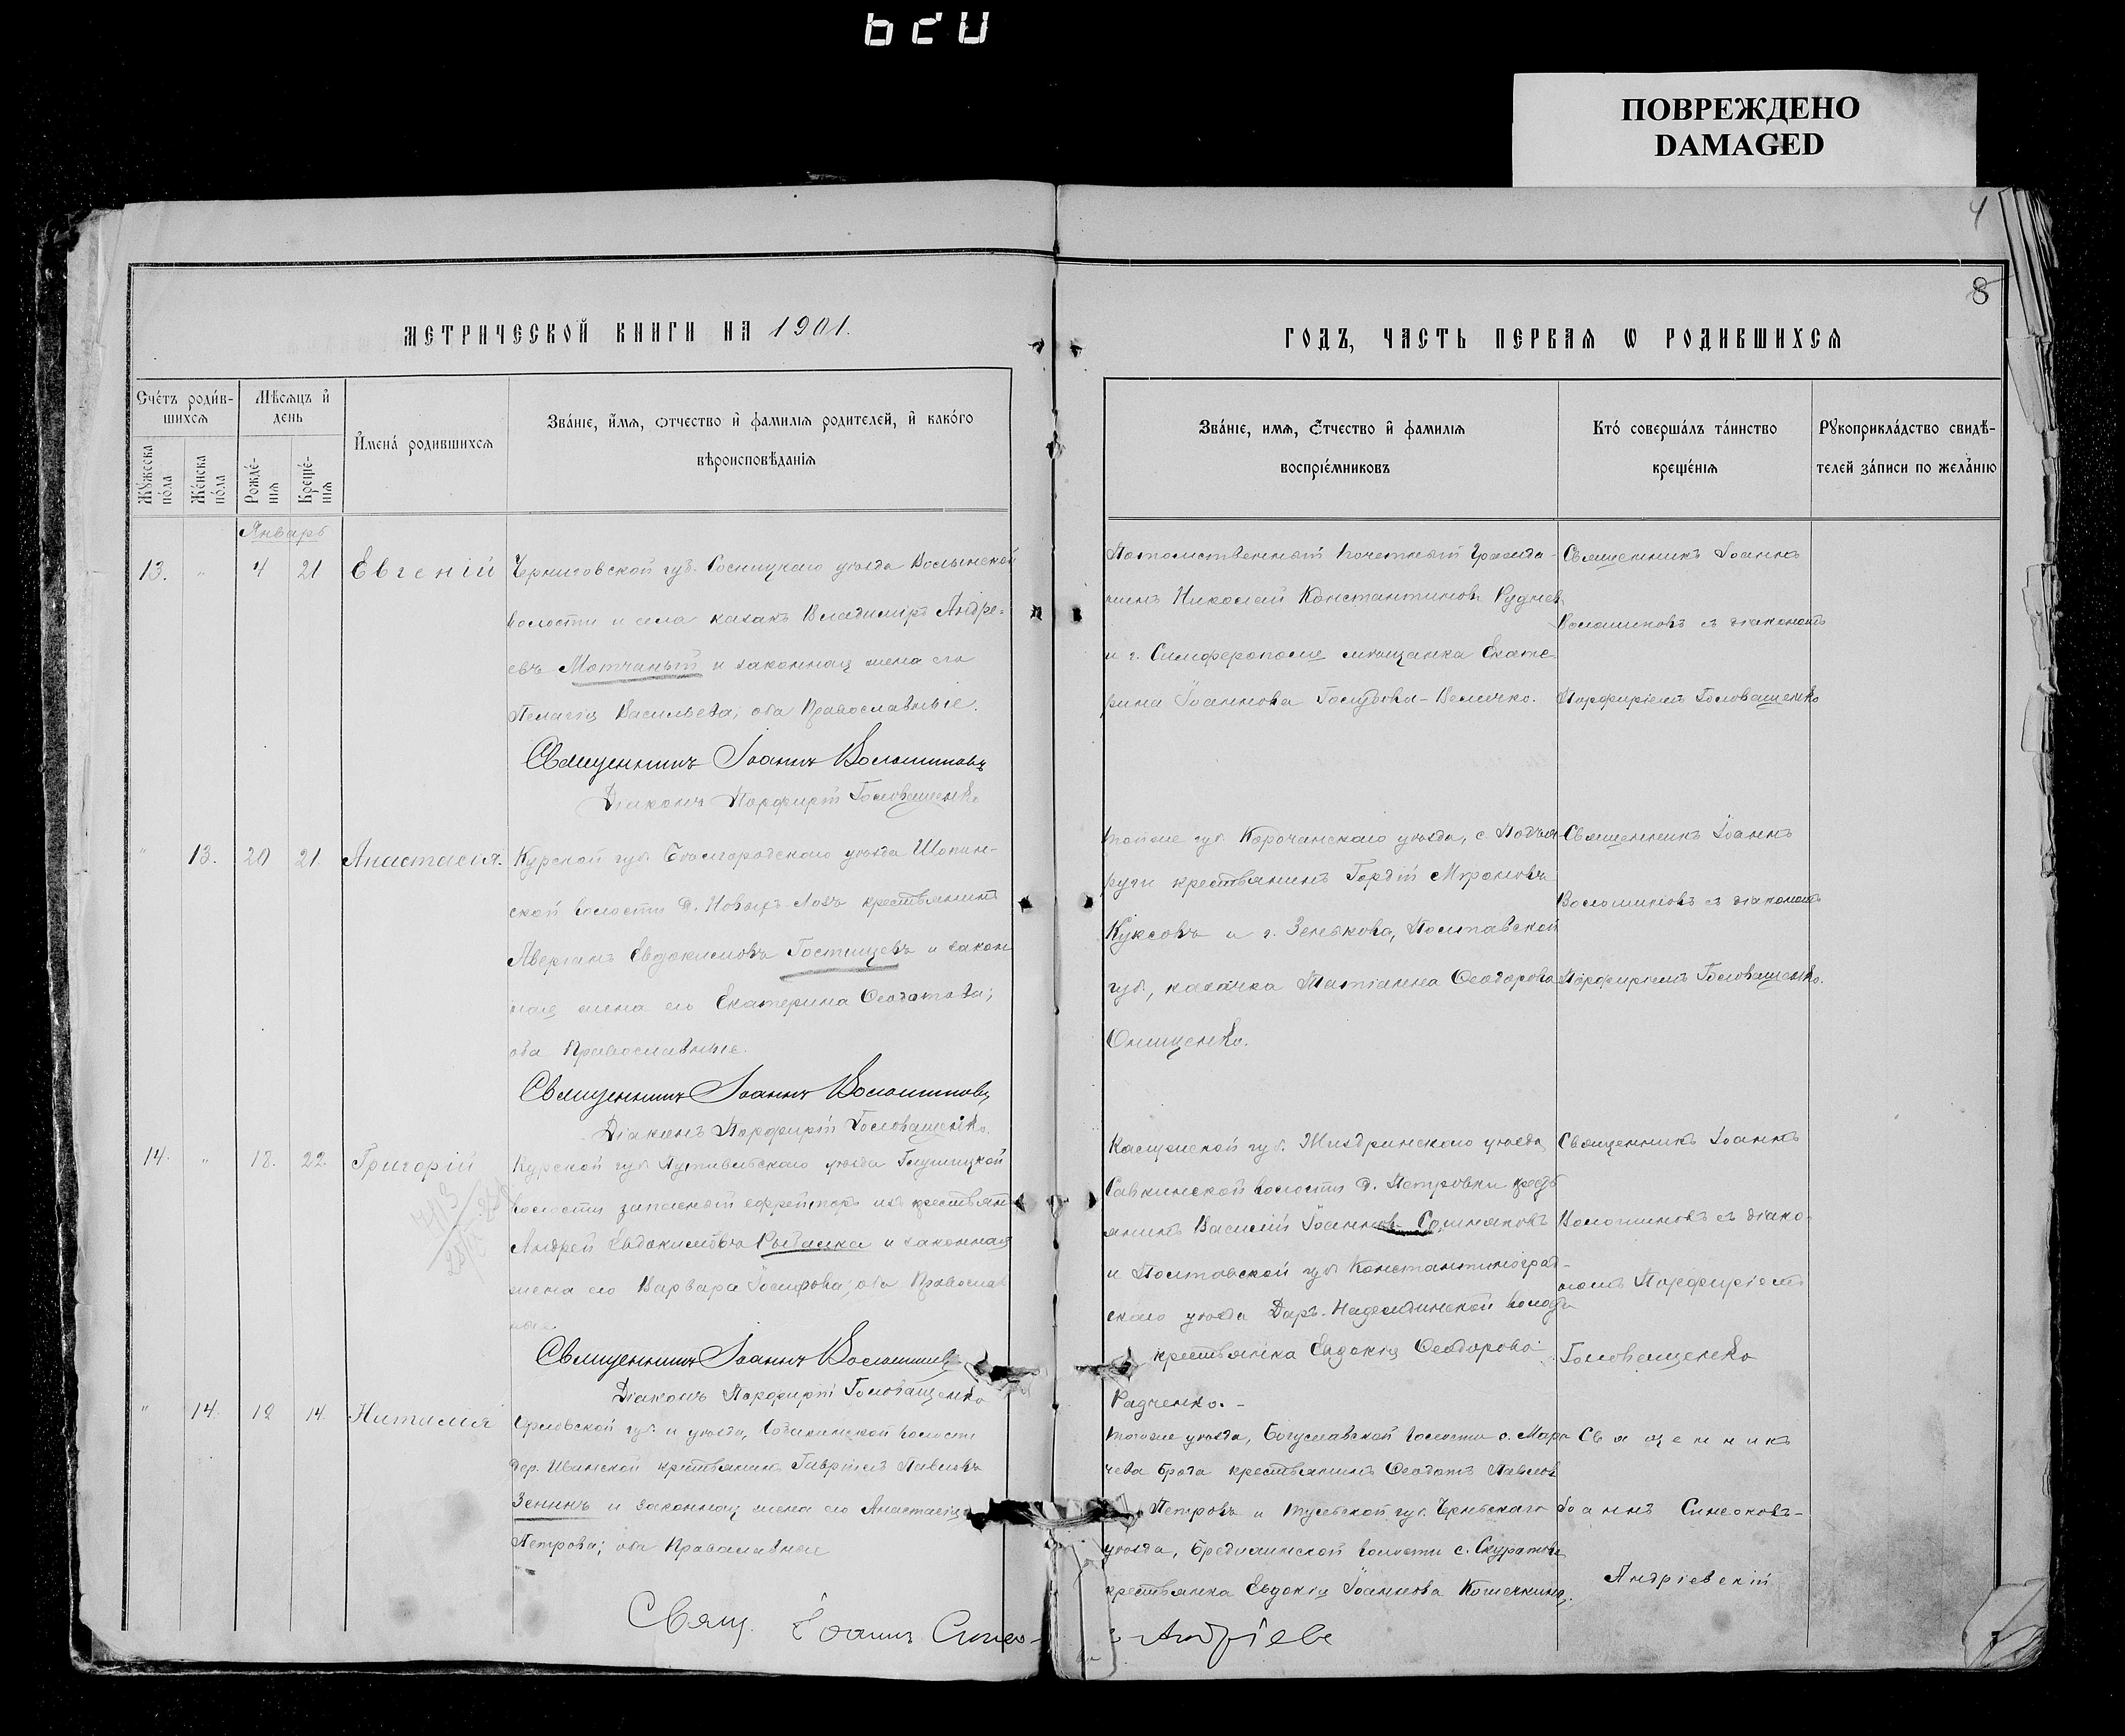 ПОВРЕЖДЕНО
DAMAGED
4
8
МЕТРИЧЕСКОЙ КНИГИ НА 1901.
ГОДЪ, ЧАСТЬ ПЕРВАЯ Ѡ РОДИВШИХСЯ
Счетъ родившихся
Мѣсяцъ и день
Имена родившихся
Званіе, имя, отчество и фамилія родителей, и какого вѣроисповѣданія
Званіе, имя, отчество и фамилія воспріемниковъ
Кто совершалъ таинство крещенія
Рукоприкладство свидѣтелей записи по желанію
Мужеска пола
Женска пола
Рожденія
Крещенія
Январь
13. " 4 21 Евгеній
Черниговской губ. Сосницкаго уѣзда Волынской
волости и села казакъ Владиміръ Андре-
евъ Мотчаный и законная жена его
Пелагія Васильева; оба Православные.
Священникъ Іоаннъ Волошиновъ
Діаконъ Порфирій Головащенко
Потомственный Почетный Гражда-
нинъ Николай Константиновъ Руднев
и г. Симферополя мѣщанка Екате-
рина Іоаннова Голубова-Величко.
Священникъ Іоаннъ
Волошиновъ съ діакономъ
Порфиріемъ Головащенко
" 13. 20 21. Анастасія.
Курской губ. Бѣлгородскаго уѣзда Шопин-
ской волости д. Новыхъ Лозъ крестьянинъ
Аверіанъ Евдокимовъ Гостищевъ и закон
ная жена его Екатерина Ѳеодотова;
оба Православные.
Священникъ Іоаннъ Волошиновъ
Діаконъ Порфирій Головащенко.
той же губ. Корочанскаго уѣзда, с.
руги крестьянинъ Гордій Мироновъ
Куксовъ и г. Зенькова, Полтавской
губ., казачка Татіанна Ѳеодорова
Онищенко.
Священникъ Іоаннъ
Волошиновъ съ діакономъ
Порфиріемъ Головащенко.
14. " 18. 22. Григорій
Курской губ. Путивльскаго уѣзда Глушицкой
волости запасный ефрейторъ изъ крестьян
Андрей Евдокимовъ Рыбалка и законная
жена его Варвара Іосифова; оба Православ
ные.
Священникъ Іоаннъ Волошинов
Діаконъ Порфирій Головащенко
Калужской губ. Жиздринскаго уѣзда
Савкинской волости д. Петровки крест
янинъ Василій Іоанновъ
и Полтавской губ. Константиноград-
скаго уѣзда Даръ-Надеждинской волости
крестьянка Евдокія Ѳеодорова
Радченко.-
Священникъ Іоаннъ
Волошиновъ съ діако-
номъ Порфиріемъ
Головащенко
" 14. 12 14. Наталія
Орловской губ. и уѣзда, волости
дер. Иванской крестьянинъ Гавріилъ Павловъ
Зенинъ и законная жена его Анастасія
Петрова; оба Православные
Свящ. Іоаннъ Симео-
тогоже уѣзда, Богуславской волости с.
чева Брода крестьянинъ Ѳеодотъ Павлов
Петровъ и Тульской губ. Чернскаго
уѣзда, волости с.
крестьянка Евдокія Іоаннова
Священникъ
Іоаннъ Симеоновъ-
Андріевскій